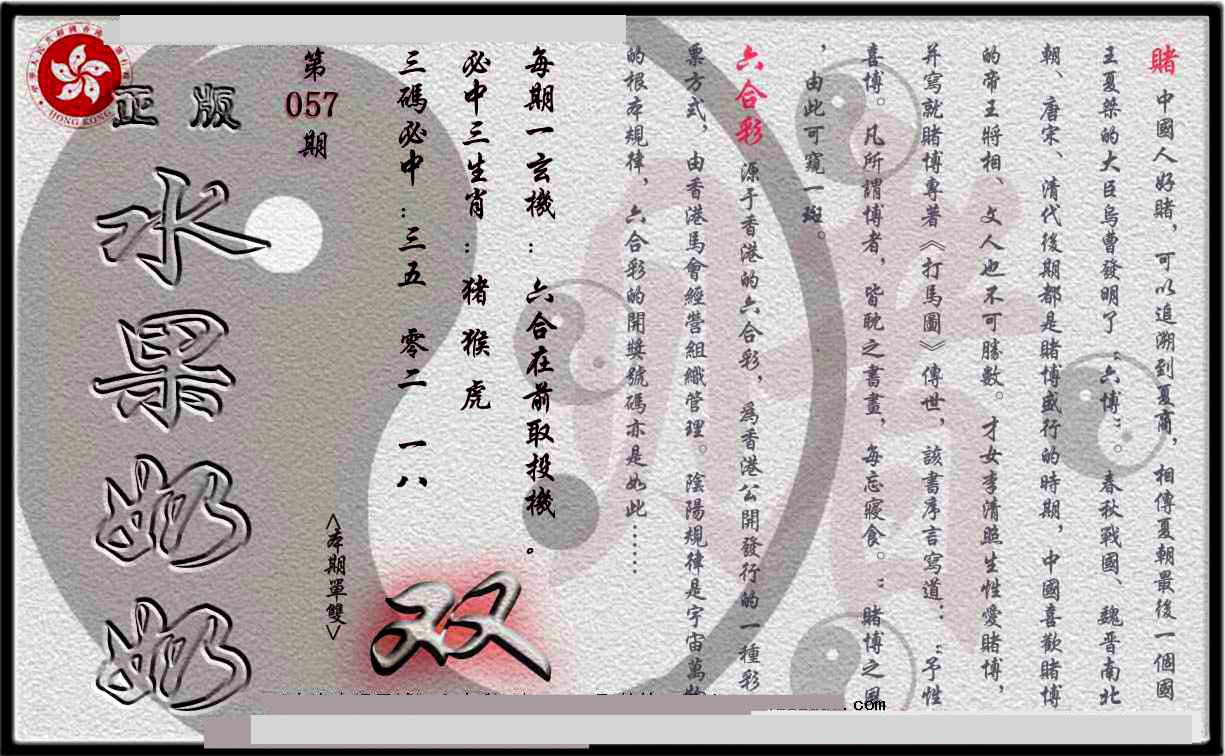 賭 中國人好賭，可以追溯到夏商，相傳夏朝最後一個國
王夏桀的大臣烏曹發明了“六博”。春秋戰國、魏晋南北
朝、唐宋、清代後期都是賭博盛行的時期，中國喜歡賭博
的帝王將相、文人也不可勝數。才女李清照生性愛賭博，
并寫就賭博專著《打馬圖》傳世，該書序言寫道：“予性
喜博。凡所謂博者，皆耽之書畫，每忘寢食。”賭博之風
，由此可窺一斑。
六合彩 源于香港的六合彩，為香港公開發行的一種彩
票方式，由香港馬會經營組織管理。陰陽規律是宇宙萬物
的根本規律，六合彩的開獎號碼亦是如此……
每期一玄機：六合在前取投機。
必中三生肖：猪 猴 虎
三碼必中：三五 零二 一八
<本期單雙>
双
第
057
期
正版
水果奶奶
HONG KONG
.com